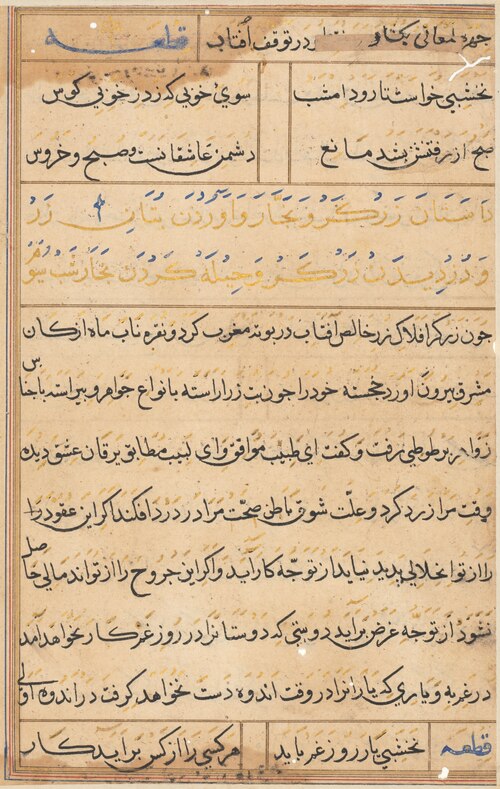 چهره لمعانی یکتاو در توقف آفتاب قطعه
نخشبی خواست تا رود امشب سوی خوبی که زد ز خوبی کوس
صبح از رفتنش بشد مانع دشمن عاشقانست صبح و خروس
داستان زرکر و نجار و آوردن بتان زر
و دزدیدن زرکر و حیله کردن نجار شب سوم
چون زرکر افلاک زر خالص آفتاب در بوته مغرب کرد و نقره ناب ماه از کان
مشرق بیرون آورد خجسته خود را چون بت زر اراسته بانواع جواهر و پیراسته باجناس
زواهر بر طوطی رفت و کفت ای طبیب موافق و ای لبیب مطابق یرقان عشق دیده
وقت مرا زرد کرد و علت شوق باطن صحت مرا در درد افکند اکر این عقود را
را از تو انحلالی پدید نیاید از توجه کار آید و اکر این جروح را از تو اندمالی حاصل
نشود از توجه غرض برآید دوستی که دوستانرا در روز غم کار نخواهد آمد
در غم به و یاری که یارانرا در وقت اندوه دست نخواهد کرفت در اندوه اولی
قطعه نخشبی یار روز غم باید هر کسی را از کس برآید کار